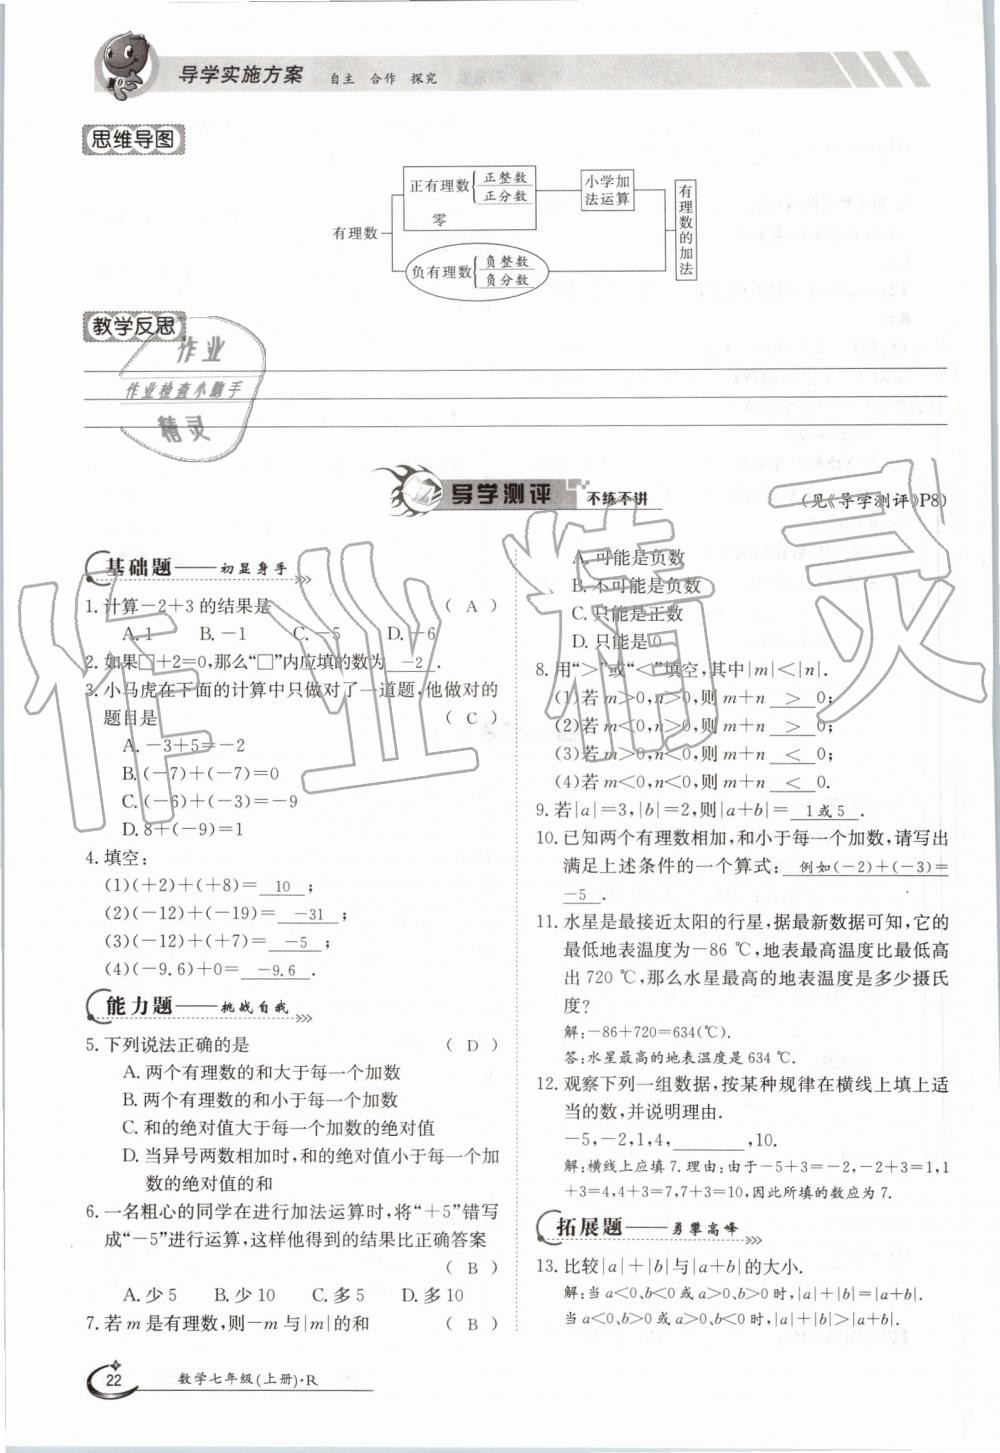 导学实施方案 自主 合作 探究
思维导图
有理数
正有理数 正整数 正分数
零
负有理数 负整数 负分数
小学加法运算
有理数的加法
教学反思
作业
作业检查小助手
精灵
导学测评 不练不讲 (见《导学测评》P8)
基础题——初显身手
1.计算－2＋3的结果是 ( A )
A.1 B.－1 C.－5 D.－6
2.如果□＋2＝0,那么“□”内应填的数为 －2 .
3.小马虎在下面的计算中只做对了一道题,他做对的
题目是 ( C )
A.－3＋5＝－2
B.(－7)＋(－7)＝0
C.(－6)＋(－3)＝－9
D.8＋(－9)＝1
4.填空:
(1)(＋2)＋(＋8)＝ 10 ;
(2)(－12)＋(－19)＝ －31 ;
(3)(－12)＋(＋7)＝ －5 ;
(4)(－9.6)＋0＝ －9.6 .
能力题——挑战自我
5.下列说法正确的是 ( D )
A.两个有理数的和大于每一个加数
B.两个有理数的和小于每一个加数
C.和的绝对值大于每一个加数的绝对值
D.当异号两数相加时,和的绝对值小于每一个加
数的绝对值的和
6.一名粗心的同学在进行加法运算时,将“＋5”错写
成“－5”进行运算,这样他得到的结果比正确答案
( B )
A.少5 B.少10 C.多5 D.多10
7.若m是有理数,则－m与|m|的和 ( B )
A.可能是负数
B.不可能是负数
C.只能是正数
D.只能是0
8.用“＞”或“＜”填空,其中|m|＜|n|.
(1)若m＞0,n＞0,则m＋n ＞ 0;
(2)若m＜0,n＞0,则m＋n ＞ 0;
(3)若m＞0,n＜0,则m＋n ＜ 0;
(4)若m＜0,n＜0,则m＋n ＜ 0.
9.若|a|＝3,|b|＝2,则|a＋b|＝ 1或5 .
10.已知两个有理数相加,和小于每一个加数,请写出
满足上述条件的一个算式: 例如(－2)＋(－3)＝
－5 .
11.水星是最接近太阳的行星,据最新数据可知,它的
最低地表温度为－86 ℃,地表最高温度比最低高
出720 ℃,那么水星最高的地表温度是多少摄氏
度?
解:－86＋720＝634(℃).
答:水星最高的地表温度是634 ℃.
12.观察下列一组数据,按某种规律在横线上填上适
当的数,并说明理由.
－5,－2,1,4,______,10.
解:横线上应填7.理由:由于－5＋3＝－2,－2＋3＝1,1
＋3＝4,4＋3＝7,7＋3＝10,因此所填的数应为7.
拓展题——勇攀高峰
13.比较|a|＋|b|与|a＋b|的大小.
解:当a＜0、b＜0或a＞0、b＞0时,|a|＋|b|＝|a＋b|.
当a＜0、b＞0或a＞0、b＜0时,|a|＋|b|＞|a＋b|.
22 数学七年级(上册)·R
作业精灵